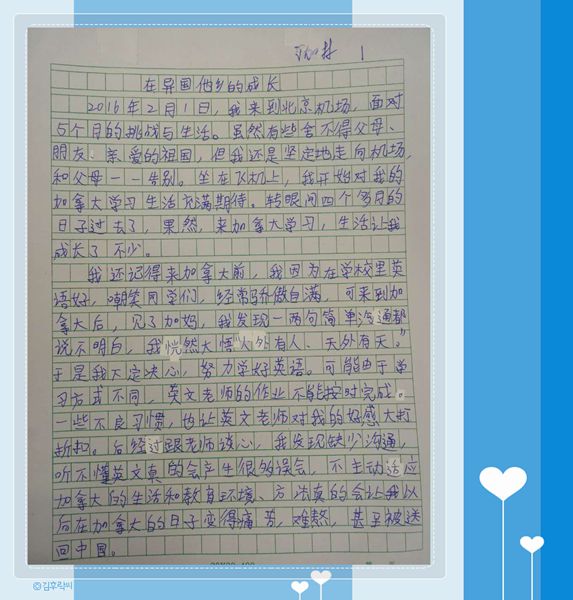 1
在异国他乡的成长
2016年2月1日，我来到北京机场，面对
5个月的挑战与生活。虽然有些舍不得父母、
朋友、亲爱的祖国，但我还是坚定地走向机场，
和父母一一告别。坐在飞机上，我开始对我的
加拿大学习生活充满期待。转眼间四个多月的
日子过去了，果然，来加拿大学习，生活让我
成长了不少。
我还记得来加拿大前，我因为在学校里英
语好，嘲笑同学们，经常骄傲自满，可来到加
拿大后，见了加妈，我发现一两句简单沟通都
说不明白，我恍然大悟“人外有人、天外有天。”
于是我下定决心，努力学好英语。可能由于学
习方式不同，英文老师的作业不能按时完成。
一些不良习惯，也让英文老师对我的好感大打
折扣。后经过跟老师谈心，我发现缺少沟通，
听不懂英文真的会产生很多误会，不主动适应
加拿大的生活和教育环境、方法真的会让我以
后在加拿大的日子变得痛苦，难熬，甚至被送
回中国。
©김후락씨